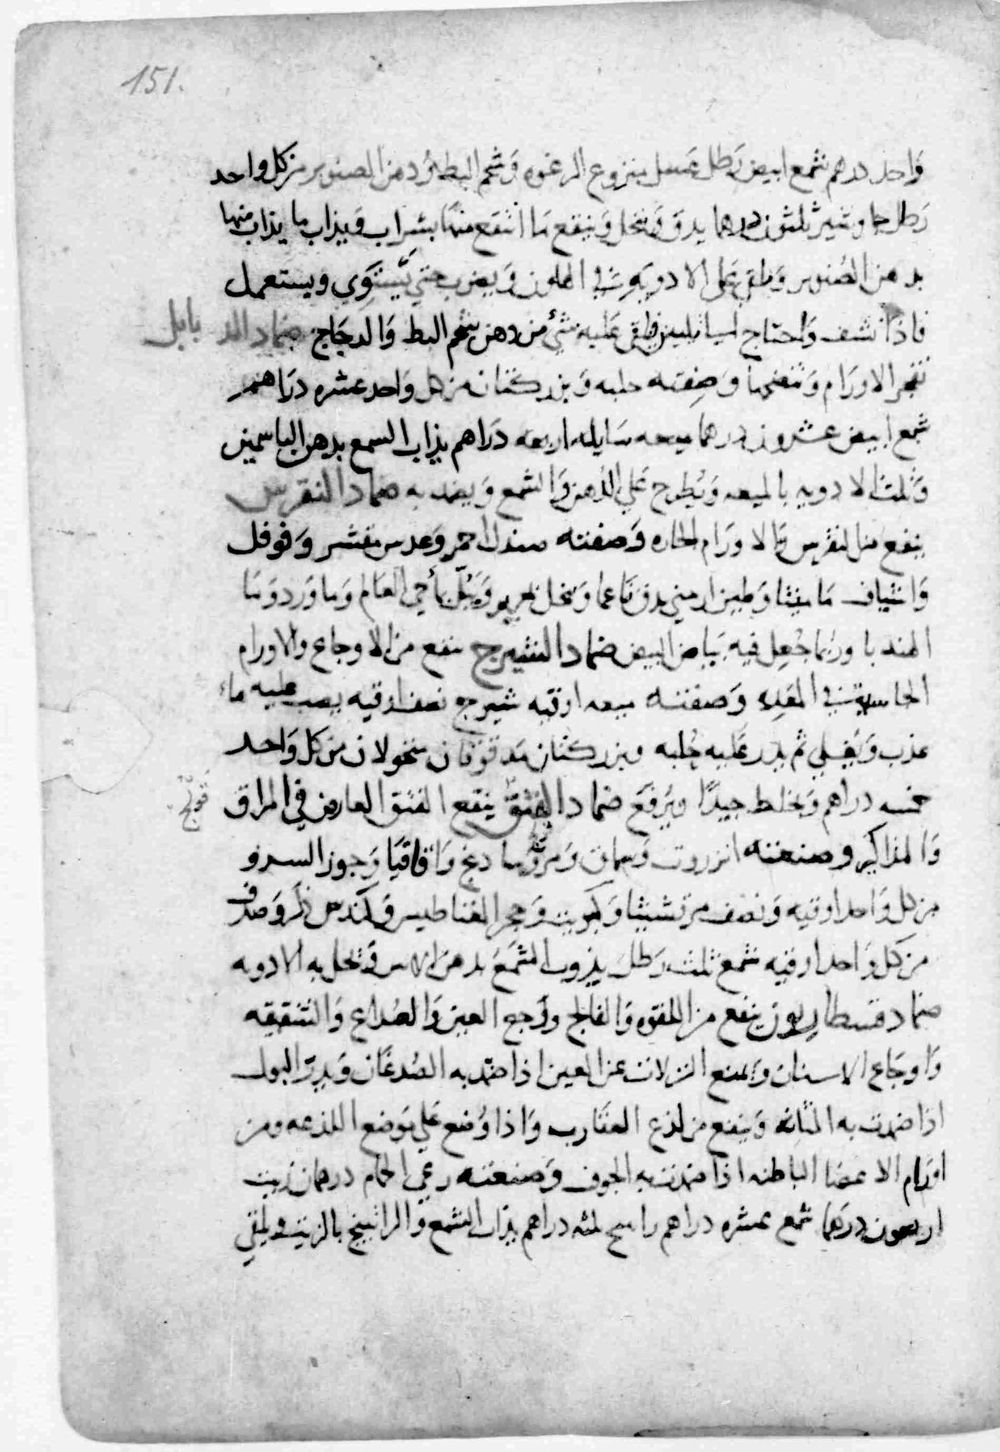 151.
واحد درهم شمع ابيض رطل عسل منزوع الرغوه وشحم البط ودهن الصنوبر من كل واحد
رطل يدق وينخل وينقع ما انتقع منها بشراب ويذاب ما يذاب منها
بدهن الصنوبر ويلقى على الادويه في الهاون ويضرب حتى يستوي ويستعمل
فاذا نشف واحتاج الى تليين فيلقى عليه شيء من دهن شحم البط والدجاج ضماد الد بابل
تفجر الاورام وتنضجها وصفته حلبه وبزر كتان من كل واحد عشره دراهم
شمع ابيض عشرون درهما ميعه سايله اربعه دراهم يذاب الشمع بدهن الياسمين
وتلت الادويه بالميعه ويطرح على الدهن والشمع ويضمد به ضماد النقرس
ينفع من النقرس والاورام الحاره وصفته صندل احمر وعدس مقشر وفوفل
واشياف ماميثا وطين ارمني يدق ناعما وينخل بحرير ويبل بماء حي العالم وماورد وما
الهندبا وربما جعل فيه بياض البيض ضماد الشيرج ينفع من الاوجاع والاورام
الحاسيه في المعده وصفته ميعه اوقيه شيرج نصف اوقيه يصب عليه ماء
عذب ويغلى ثم يذر عليه حلبه وبزر كتان مدقوقان منخولان من كل واحد
خمسه دراهم ويخلط جيدا ويرفع ضماد الفتق ينفع الفتق العارض في المراق
والمذاكير وصنعته انزروت وسماق ومر واقاقيا وجوز السرو
من كل واحد اوقيه ونصف مرقشيثا وكبريت وحجر المغناطيس وكندس ذكر وصدف
من كل واحد اوقيه شمع ثلث رطل يذوب الشمع بدهن الاس وتحل به الادويه
ضماد قسطاريون ينفع من اللقوه والفالج ووجع العين والصداع والشقيقه
واوجاع الاسنان ويمنع النزلات عن العين اذا ضمد به الصدغان ويدر البول
اذا ضمدت به المثانه وينفع من لذع العقارب واذا وضع على موضع اللذعه ومن
اورام الاعضا الباطنه اذا ضمدت به الجوف وصنعته رعي الحمام درهمان زيت
اربعون درهما شمع عشره دراهم راتينج ثلثه دراهم يذاب الشمع والراتينج بالزيت ويلقى